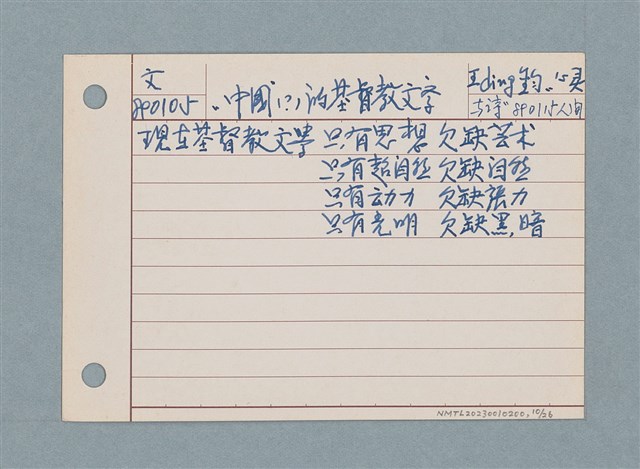 文
890105
"中國(?)的基督教文字
王ding鈞
890115人間
現在基督教文學 只有思想 欠缺芸术
只有超自然 欠缺自然
只有动力 欠缺張力
只有光明 欠缺黑暗
NMTL20230010200, 10/26